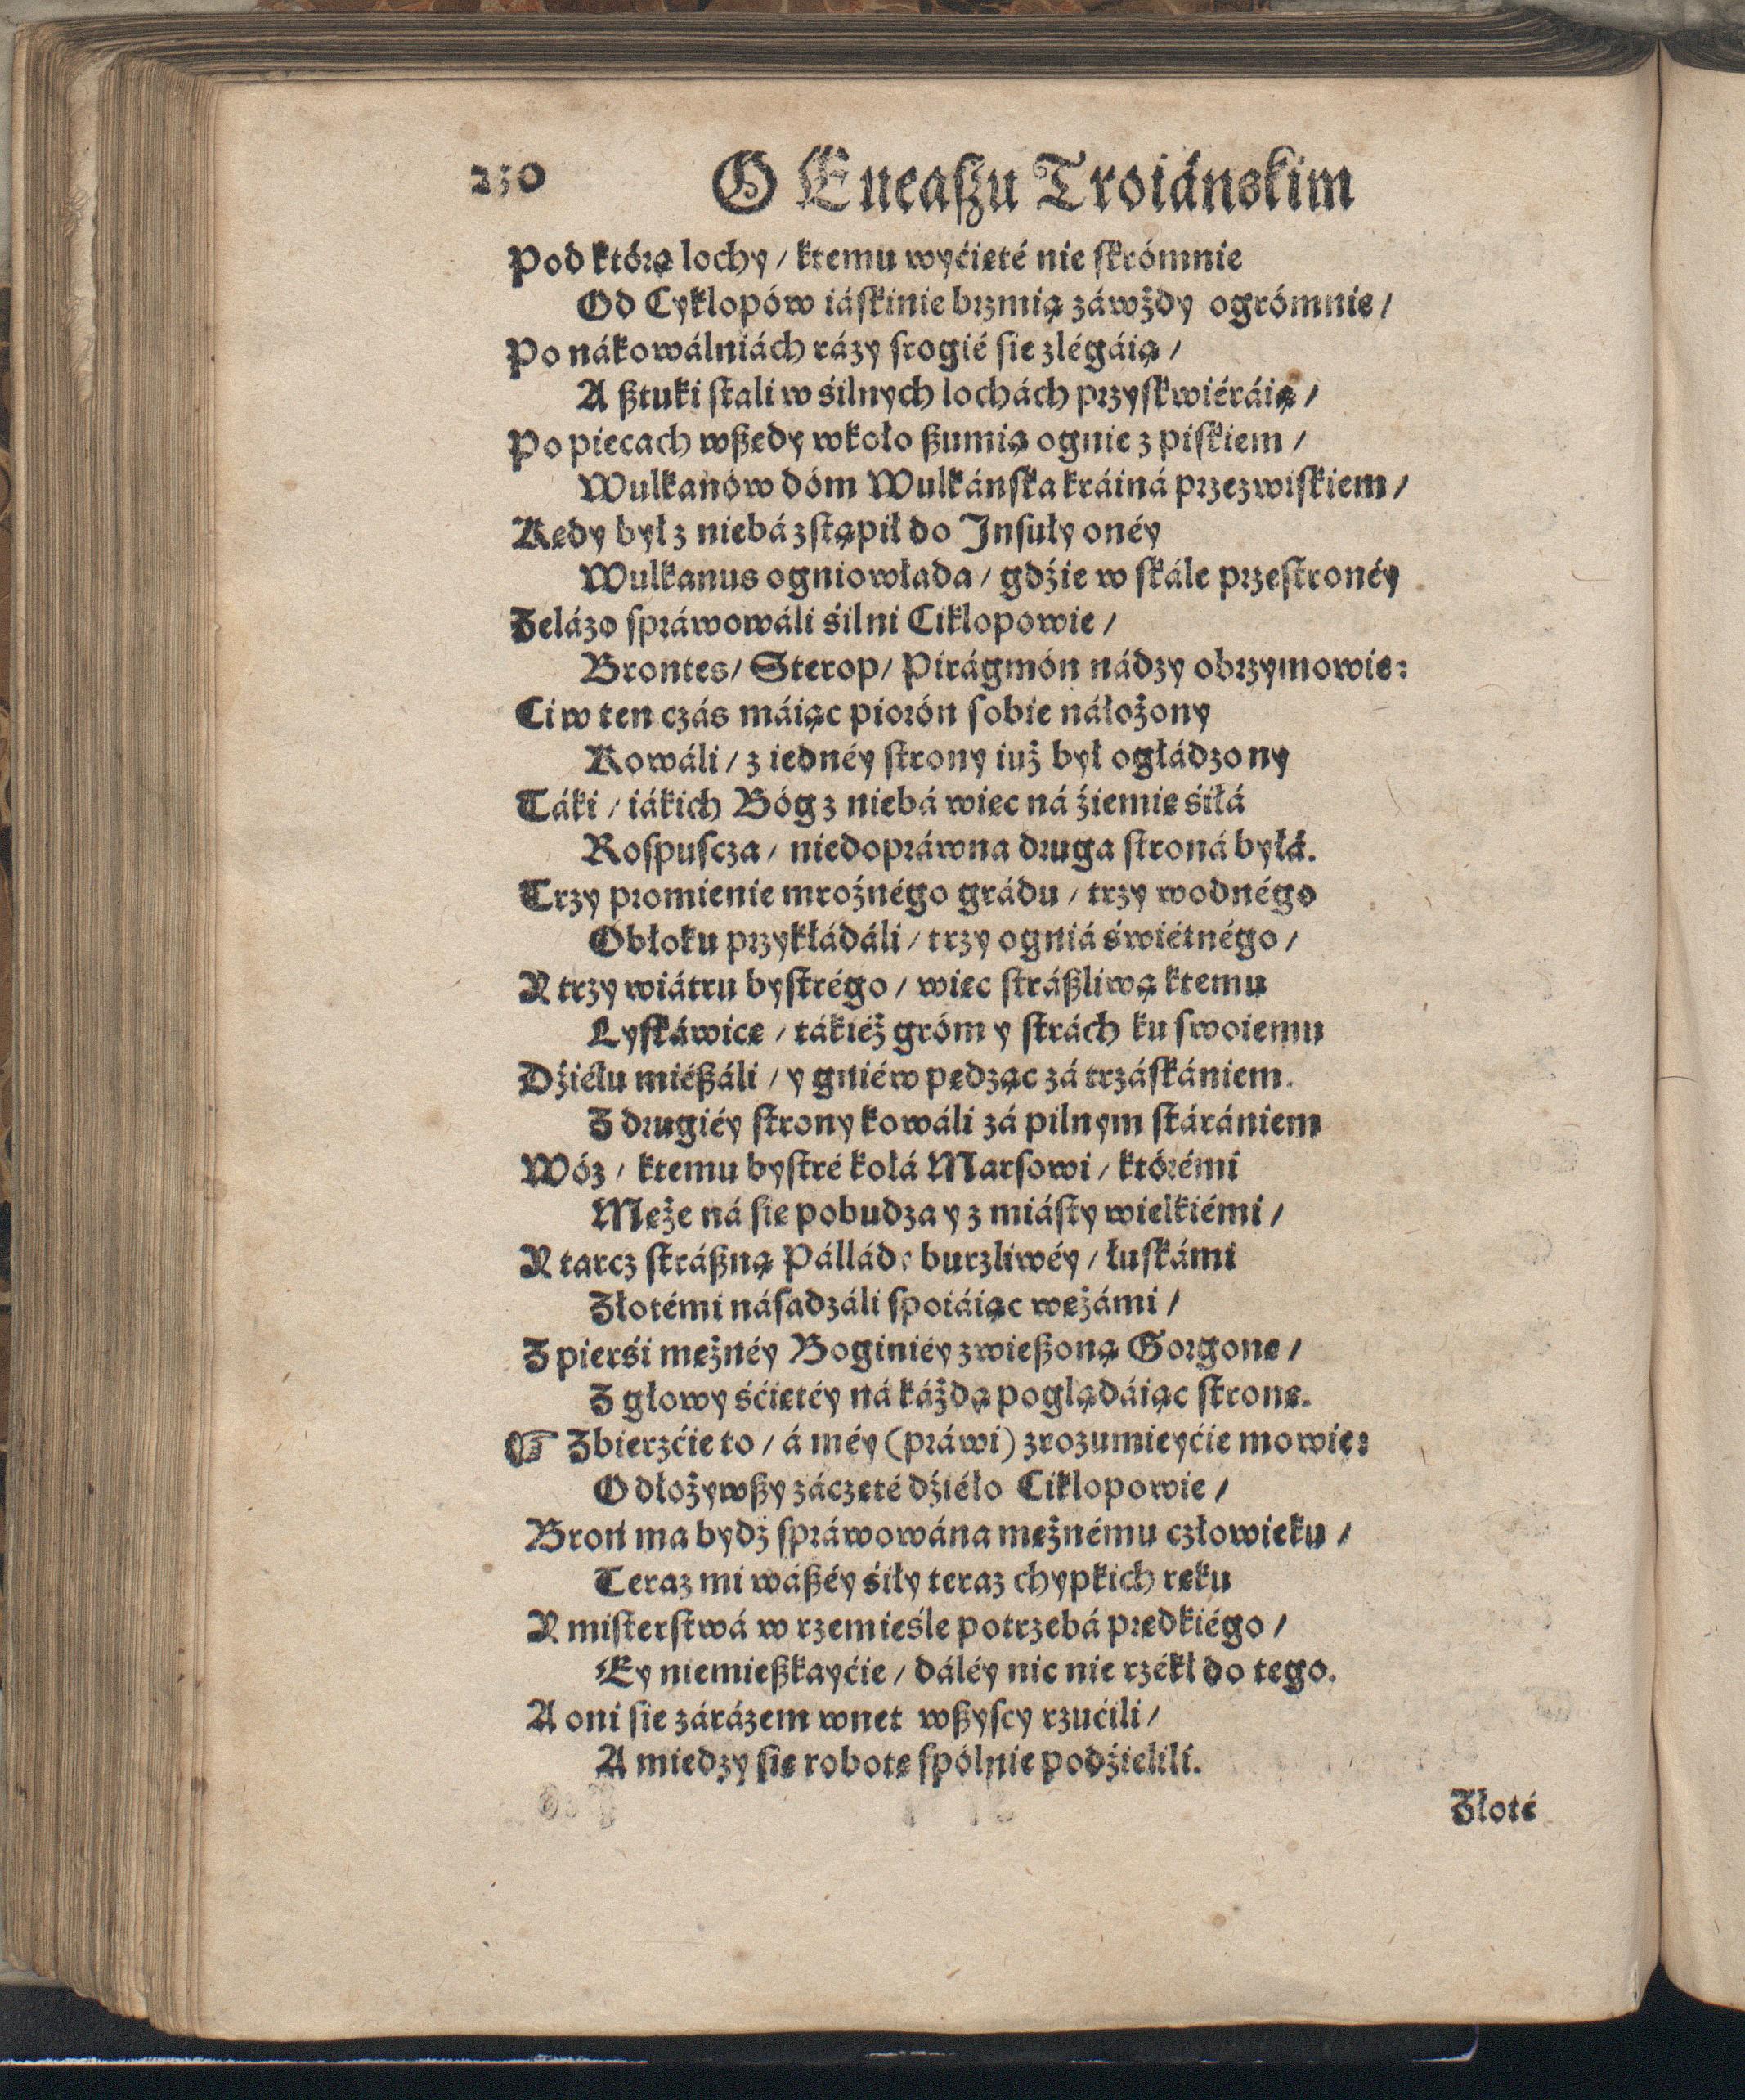 230 O Eneaſzu Troiánskim
Pod którą lochy / ktemu wyćięté nie ſkrómnie
Od Cyklopów iáſkinie brzmią záwżdy ogrómnie /
Po nákowálniách rázy ſrogié ſie zlégáią /
A ßtuki ſtali w śilnych lochách przyſkwiéráią /
Po piecach wßędy wkoło ßumią ognie z piſkiem /
Wulkanów dóm Wulkánſka kráiná przezwiſkiem /
Kędy był z niebá zſtąpił do Inſuły onéy
Wulkanus ogniowłada / gdźie w ſkále przeſtronéy
Żelázo ſpráwowáli śilni Ciklopowie /
Brontes / Sterop / Pirágmón nádzy obrzymowie:
Ci w ten czás máiąc piorón ſobie náłożony
Kowáli / z iednéy ſtrony iuż był ogłádzony
Táki / iákich Bóg z niebá więc ná źiemię śiłá
Roſpuſcza / niedopráwna druga ſtroná byłá.
Trzy promienie mroźnégo grádu / trzy wodnégo
Obłoku przykłádáli / trzy ogniá świétnégo /
Y trzy wiátru byſtrégo / więc ſtráßliwą ktemu
Lyſkáwicę / tákiéż gróm y ſtrách ku ſwoiemu
Dźiéłu miéßáli / y gniéw pędząc zá trzáſkániem.
Z drugiéy ſtrony kowáli zá pilnym ſtárániem
Wóz / ktemu byſtré kołá Marſowi / którémi
Męże ná ſie pobudza y z miáſty wielkiémi /
Y tarcz ſtráßną Pálládz burzliwéy / łuſkámi
Złotémi náſadzáli ſpoiáiąc wężámi /
Z pierśi mężnéy Boginiéy zwießoną Gorgonę /
Z głowy śćiętéy ná káżdą poglądáiąc ſtronę.
☞ Zbierzćie to / á méy (práwi) zrozumieyćie mowie:
Odłożywßy záczęté dźiéło Ciklopowie /
Broń ma bydź ſpráwowána mężnému człowieku /
Teraz mi wáßéy śiły teraz chypkich ręku
Y miſterſtwá w rzemieśle potrzebá prędkiégo /
Ey niemießkayćie / dáléy nic nie rzékł do tego.
A oni ſie zárázem wnet wßyſcy rzućili /
A miedzy ſię robotę ſpólnie podźielili.
Złoté